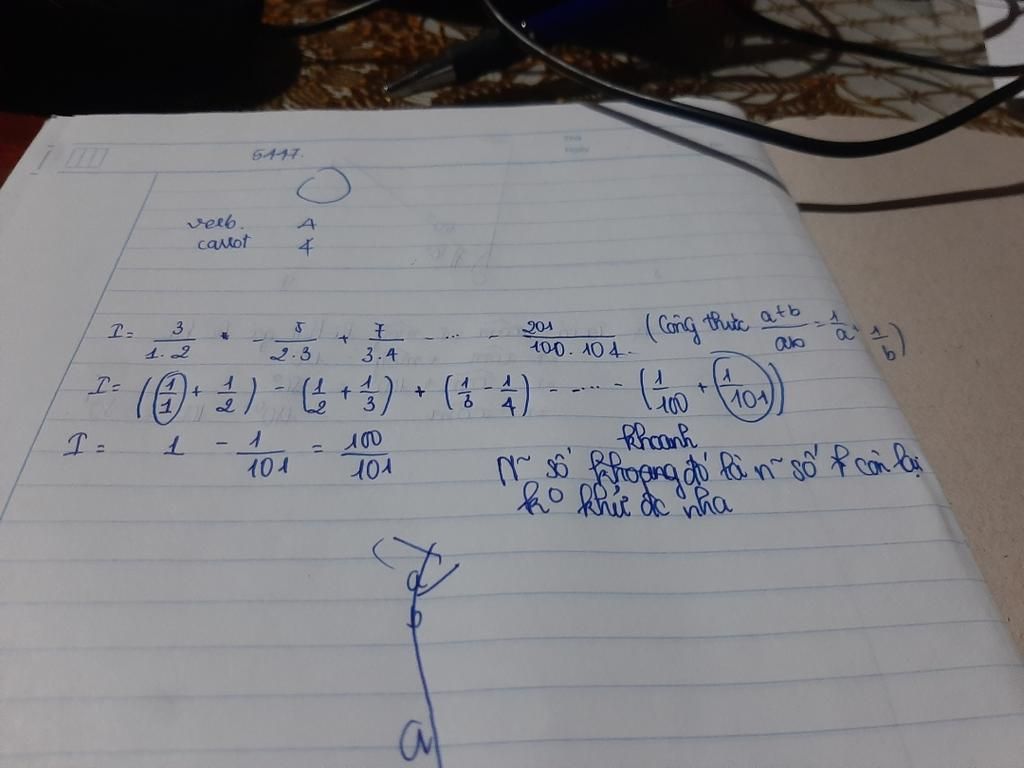 5447.
verb. A
carrot 4
I = 3/1.2 - 5/2.3 + 7/3.4 - ... - 201/100.101. (Công thức a+b/ab = 1/a + 1/b)
I = (1/1 + 1/2) - (1/2 + 1/3) + (1/3 - 1/4) - .... - (1/100 + 1/101)
I = 1 - 1/101 = 100/101
khoanh
N~ số khoang đó là n~ số k còn lại
k° khử đc nha
a
b
a